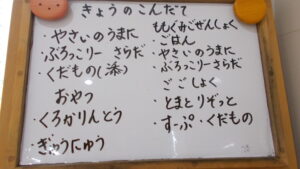 きょうのこんだて
・やさいのうまに
・ぶろっこりー さらだ
・くだもの(添)
おやつ
・くろかりんとう
ぎゅうにゅう
ももぐみごぜんしょく
・ごはん
・やさいのうまに
・ぶろっこりーさらだ
ごごしょく
・とまとりぞっと
・すーぷ・くだもの